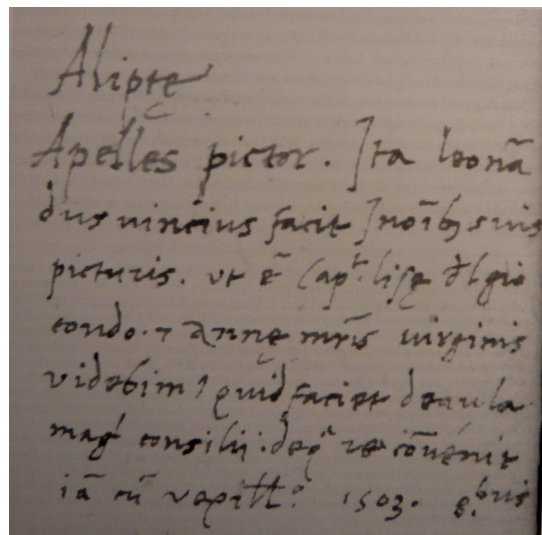 Alipte
Apelles pictor. Ita leonā
dus uincius facit I noībꝫ suis
picturis. vt ē Capᵗ lisę dl gio
condo. ⁊ annę mr̄is uirginis
videbimꝰ quid faciet de aula
magⁱ consilii. de qᵃ re cōuenit
iā cū vexillꝰ. 1503. 8.bris